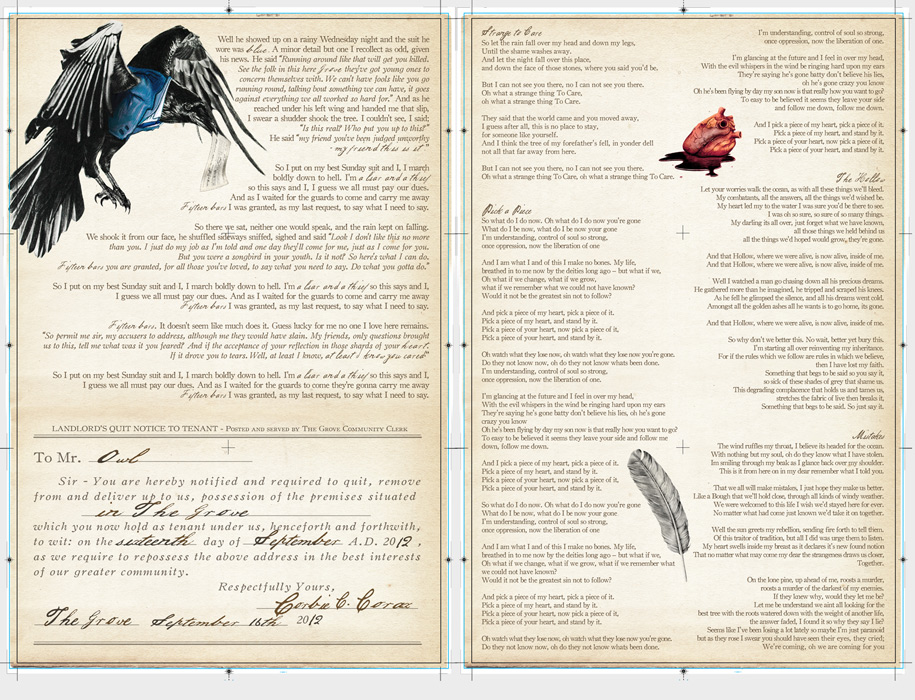 Well he showed up on a rainy Wednesday night and the suit he
wore was blue. A minor detail but one I recollect as odd, given
his news. He said "Running around like that will get you killed.
See the folk in this here grove they've got young ones to
concern themselves with. We can't have fools like you go
running round, talking bout something we can have, it goes
against everything we all worked so hard for." And as he
reached under his left wing and handed me that slip,
I swear a shudder shook the tree. I couldn't, I said;
"Is this real? Who put you up to this?"
He said "my friend you've been judged unworthy
- my friend this is it"
So I put on my best Sunday suit and I, I march
boldly down to hell. I'm a liar and a thief
so this says and I, I guess we all must pay our dues.
And as I waited for the guards to come and carry me away
Fifteen bars I was granted, as my last request, to say what I need to say.
So there we sat, neither one would speak, and the rain kept on falling.
We shook it from our face, he shuffled sideways sniffed, sighed and said "Look I don't like this no more
than you. I just do my job as I'm told and one day they'll come for me, just as I come for you.
But you were a songbird in your youth. Is it not? So here's what I can do.
Fifteen bars you are granted, for all those you've loved, to say what you need to say. Do what you gotta do."
So I put on my best Sunday suit and I, I march boldly down to hell. I'm a liar and a thief so this says and I,
I guess we all must pay our dues. And as I waited for the guards to come and carry me away
Fifteen bars I was granted, as my last request, to say what I need to say.
Fifteen bars. It doesn't seem like much does it. Guess lucky for me no one I love here remains.
"So permit me sir, my accusers to address, although me they would have slain. My friends, only questions brought
us to this, tell me what was it you feared? And if the acceptance of your reflection in those shards of your heart.
If it drove you to tears. Well, at least I know, at least I know you cared"
So I put on my best Sunday suit and I, I march boldly down to hell. I'm a liar and a thief so this says and I,
I guess we all must pay our dues. And as I waited for the guards to come they're gonna carry me away
Fifteen bars I was granted, as my last request, to say what I need to say.
LANDLORD'S QUIT NOTICE TO TENANT - Posted and served by The Grove Community Clerk
To Mr. Owl
Sir - You are hereby notified and required to quit, remove
from and deliver up to us, possession of the premises situated
in The Grove
which you now hold as tenant under us, henceforth and forthwith,
to wit: on the sixteenth day of September A.D. 2012.
as we require to repossess the above address in the best interests
of our greater community.
Respectfully Yours,
Corbie C. Corax
The Grove September 16th 2012
Strange to Care
So let the rain fall over my head and down my legs,
Until the shame washes away.
And let the night fall over this place,
and down the face of those stones, where you said you'd be.
But I can not see you there, no I can not see you there.
Oh what a strange thing To Care,
oh what a strange thing To Care.
They said that the world came and you moved away,
I guess after all, this is no place to stay,
for someone like yourself.
And I think the tree of my forefather's fell, in yonder dell
not all that far away from here.
But I can not see you there, no I can not see you there.
Oh what a strange thing To Care, oh what a strange thing To Care.
Pick a Piece
So what do I do now. Oh what do I do now you're gone
What do I do now, what do I be now your gone
I'm understanding, control of soul so strong,
once oppression, now the liberation of one
And I am what I am and of this I make no bones. My life,
breathed in to me now by the deities long ago – but what if we,
Oh what if we change, what if we grow,
what if we remember what we could not have known?
Would it not be the greatest sin not to follow?
And pick a piece of my heart, pick a piece of it.
Pick a piece of my heart, and stand by it.
Pick a piece of your heart, now pick a piece of it,
Pick a piece of your heart, and stand by it.
Oh watch what they lose now, oh watch what they lose now you're gone.
Do they not know now, oh do they not know whats been done.
I'm understanding, control of soul so strong,
once oppression, now the liberation of one.
I'm glancing at the future and I feel in over my head,
With the evil whispers in the wind be ringing hard upon my ears
They're saying he's gone batty don't believe his lies, oh he's gone
crazy you know
Oh he's been flying by day my son now is that really how you want to go?
To easy to be believed it seems they leave your side and follow me
down, follow me down.
And I pick a piece of my heart, pick a piece of it.
Pick a piece of my heart, and stand by it.
Pick a piece of your heart, now pick a piece of it,
Pick a piece of your heart, and stand by it.
So what do I do now. Oh what do I do now you're gone
What do I do now, what do I be now you gone
I'm understanding, control of soul so strong,
once oppression, now the liberation of one
And I am what I am and of this I make no bones. My life,
breathed in to me now by the deities long ago – but what if we,
Oh what if we change, what if we grow, what if we remember what
we could not have known?
Would it not be the greatest sin not to follow?
And pick a piece of my heart, pick a piece of it.
Pick a piece of my heart, and stand by it.
Pick a piece of your heart, now pick a piece of it,
Pick a piece of your heart, and stand by it.
Oh watch what they lose now, oh watch what they lose now you're gone.
Do they not know now, oh do they not know whats been done.
I'm understanding, control of soul so strong,
once oppression, now the liberation of one.
I'm glancing at the future and I feel in over my head,
With the evil whispers in the wind be ringing hard upon my ears
They're saying he's gone batty don't believe his lies,
oh he's gone crazy you know
Oh he's been flying by day my son now is that really how you want to go?
To easy to be believed it seems they leave your side
and follow me down, follow me down.
And I pick a piece of my heart, pick a piece of it.
Pick a piece of my heart, and stand by it.
Pick a piece of your heart, now pick a piece of it,
Pick a piece of your heart, and stand by it.
The Hollow
Let your worries walk the ocean, as with all these things we'll bleed.
My combatants, all the answers, all the things we'd wished be.
My heart led my to the water I was sure you'd be there to see.
I was oh so sure, so sure of so many things.
My darling its all over, just forget what we have known,
all those things we held behind us
all the things we'd hoped would grow, they're gone.
And that Hollow, where we were alive, is now alive, inside of me.
And that Hollow, where we were alive, is now alive, inside of me.
Well I watched a man go chasing down all his precious dreams.
He gathered more than he imagined, he tripped and scraped his knees.
As he fell he glimpsed the silence, and all his dreams went cold.
Amongst all the golden ashes all he wants is to go home, its gone.
And that Hollow, where we were alive, is now alive, inside of me.
So why don't we better this. No wait, better yet bury this.
I'm starting all over reinventing my inheritance.
For if the rules which we follow are rules in which we believe,
then I have lost my faith.
Something that begs to be said so you say it,
so sick of these shades of grey that shame us.
This degrading complacence that holds us and tames us,
stretches the fabric of live then breaks it,
Something that begs to be said. So just say it.
Mistakes
The wind ruffles my throat, I believe its headed for the ocean.
With nothing but my soul, oh do they know what I have stolen.
Im smiling through my beak as I glance back over my shoulder.
This is it from here on in my dear remember what I told you.
That we all will make mistakes, I just hope they make us better.
Like a Bough that we'll hold close, through all kinds of windy weather.
We were welcomed to this life I wish we'd stayed here for ever.
No matter what had come just known we'd take it on together.
Well the sun greets my rebellion, sending fire forth to tell them.
Of this traitor of tradition, but all I did was urge them to listen.
My heart swells inside my breast as it declares it's new found notion
That no matter what may come my dear the strangeness draws us closer,
Together.
On the lone pine, up ahead of me, roosts a murder,
roosts a murder of the darkest of my enemies.
If they knew why, would they let me be?
Let me be understand we aint all looking for the
best tree with the roots watered down with the weight of another life,
the answer faded, I found it so why they say I lie?
Seems like I've been losing a lot lately so maybe I'm just paranoid
but as they rose I swear you should have seen their eyes, they cried;
We're coming, oh we are coming for you